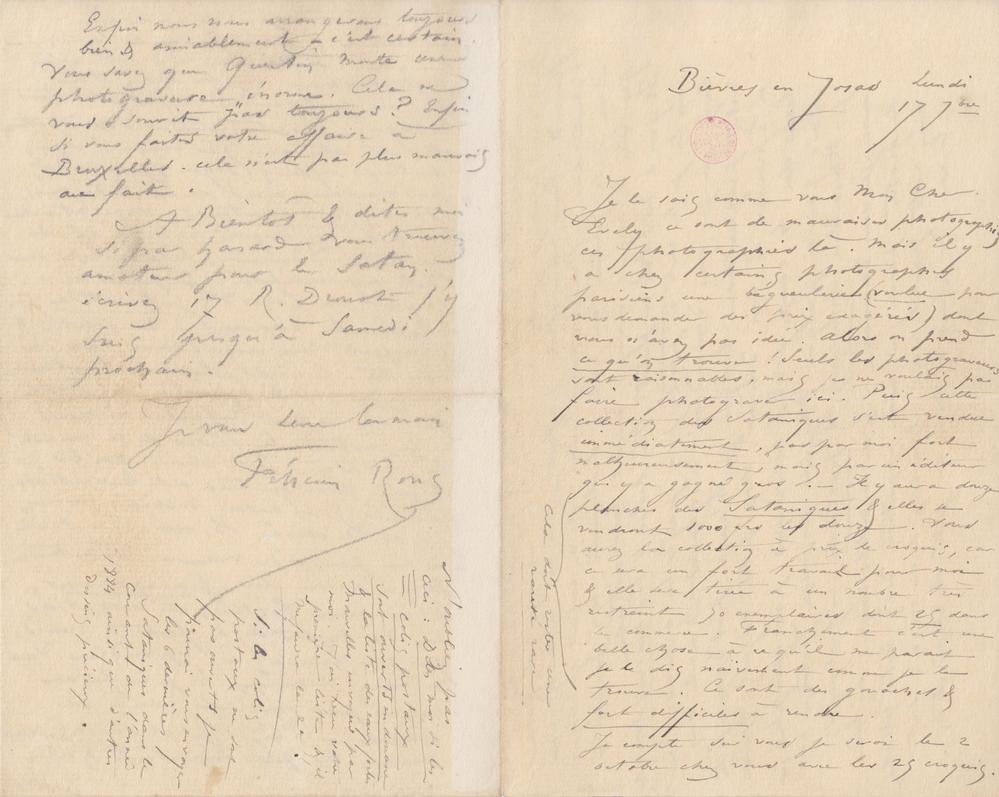 Bièvres en Josas Lundi
17 7bre
Je le sais comme vous Mon Cher
Evely ce sont de mauvaises photographies
ces photographies là. Mais il y
a chez certains photographes
parisiens une bégueulerie (voulue pour
vous demander des prix exagérés) dont
vous n'avez pas idée. Alors on prend
ce qu'on trouve ! Seuls les photograveurs
sont raisonnables, mais je ne voulais pas
faire photograver ici. Puis cette
collection des Sataniques s'est vendue
immédiatement, pas par moi fort
malheureusement, mais par un éditeur
qui y a gagné gros ! – Il y aura douze
planches des Sataniques & elles se
vendront 1000 frs les douze. Vous
aurez la collection à prix de croquis, car
ce sera un fort travail pour moi
& elle sera tirée à un nombre très
restreint 50 exemplaires dont 25 dans
le commerce. Franchement c'est une
belle chose à ce qu'il me parait
je le dis naïvement comme je le
trouve. Ce sont des gouaches &
fort difficiles à rendre.
Je compte sur vous je serai le 2
octobre chez vous avec les 25 croquis.
Cela doit rester une
rareté rare
Enfin nous nous arrangerons toujours
bien & amiablement c'est certain.
Vous savez que Quentin monte une
photogravure énorme. Cela ne
vous sourit pas toujours ? Enfin
si vous faites votre affaire à
Bruxelles. cela n'est pas plus mauvais
au fait.
A Bientôt & dites moi
si par hasard vous trouvez
amateur pour le Satan.
écrivez 17 R. Drouot j'y
suis jusqu'à Samedi
prochain.
Je vous serre les mains
Félicien Rops
N'oubliez pas
ceci : Dites moi si les
colis postaux
sont ouverts en douane
& la liste des eaux fortes
nouvelles envoyées par
moi
Si les colis
postaux ne sont
pas ouverts je
pourrai vous envoyer
les 6 dernières
Sataniques dans le
courant de l'année
1884 ainsi que d'autres
dessins